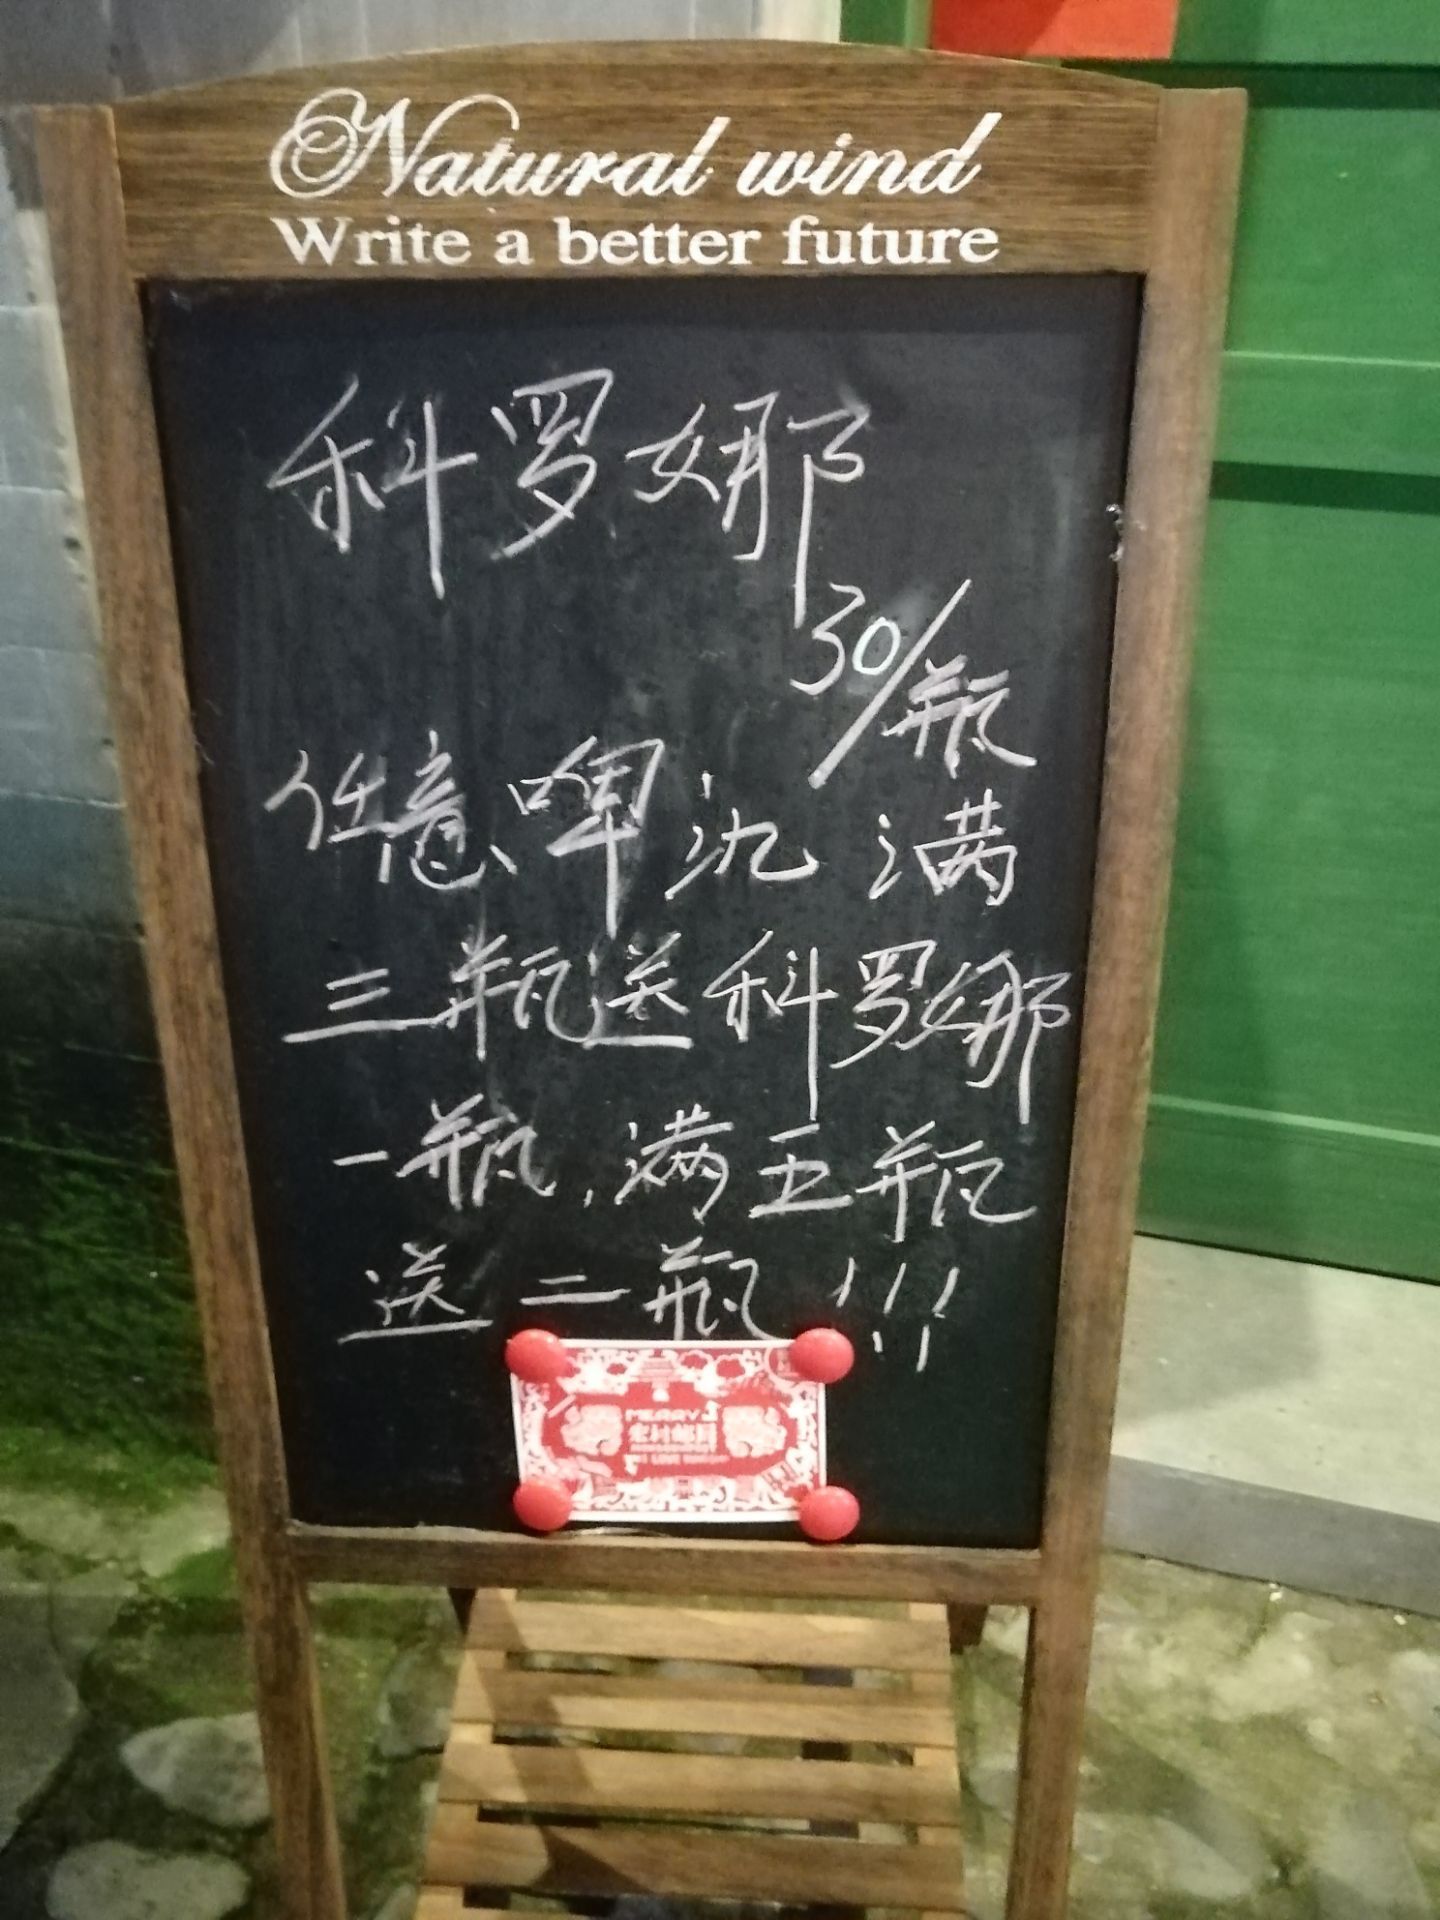 Natural wind
Write a better future
科罗娜
30/瓶
任意啤氿 满
三瓶送科罗娜
一瓶,满五瓶
送二瓶!!!
MERRY